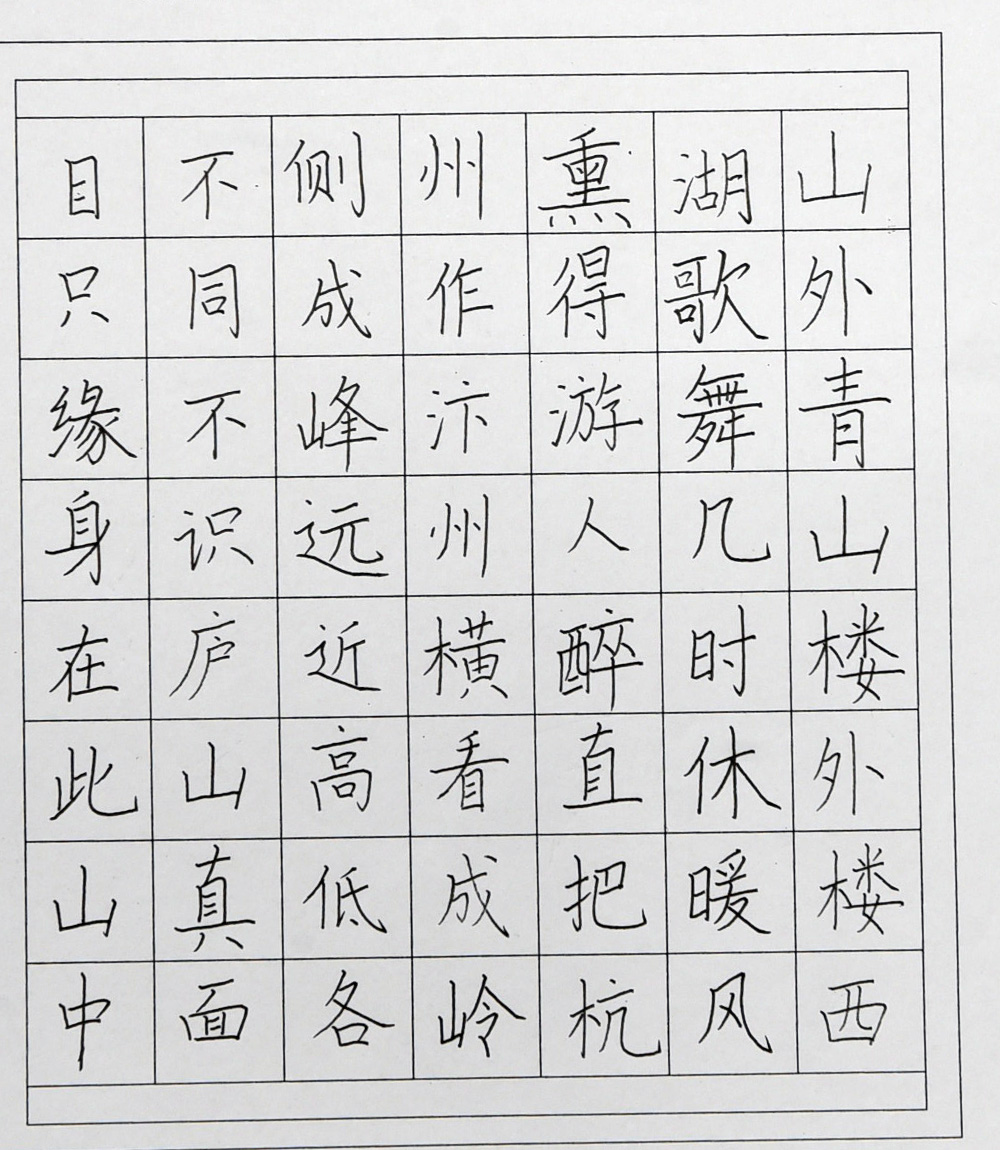 山外青山楼外楼西
湖歌舞几时休暖风
熏得游人醉直把杭
州作汴州横看成岭
侧成峰远近高低各
不同不识庐山真面
目只缘身在此山中